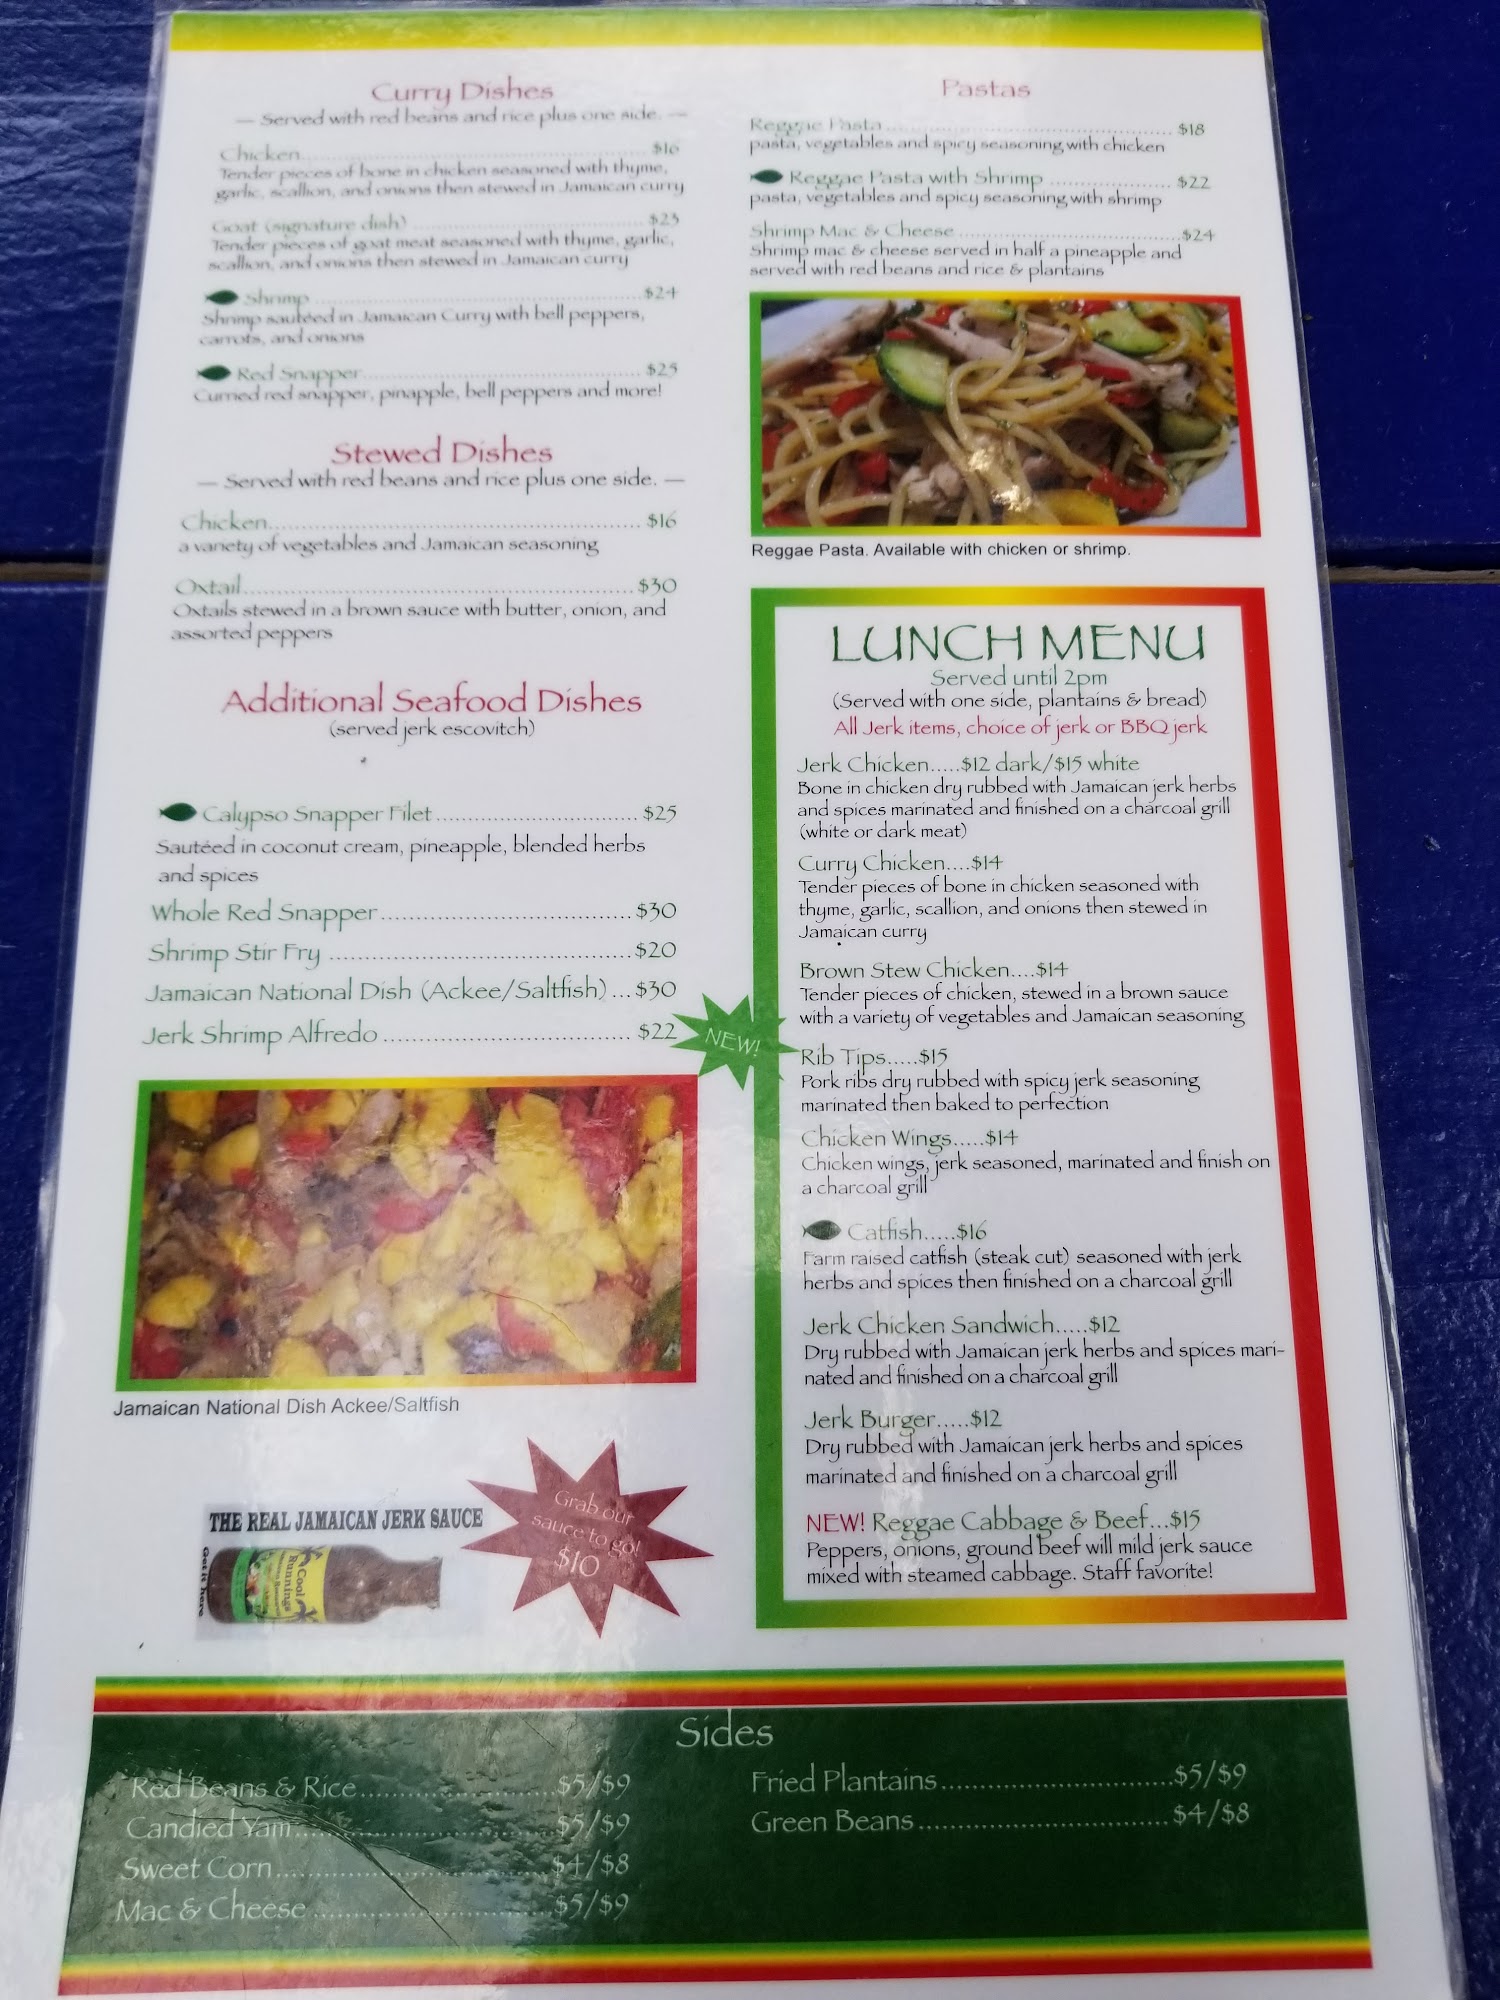 Curry Dishes
— Served with red beans and rice plus one side. —
Chicken.......... $16
Tender pieces of bone in chicken seasoned with thyme,
garlic, scallion, and onions then stewed in Jamaican curry
Goat (signature dish) .......... $23
Tender pieces of goat meat seasoned with thyme, garlic,
scallion, and onions then stewed in Jamaican curry
Shrimp .......... $24
Shrimp sautéed in Jamaican Curry with bell peppers,
carrots, and onions
Red Snapper.......... $25
Curried red snapper, pinapple, bell peppers and more!
Stewed Dishes
— Served with red beans and rice plus one side. —
Chicken.......... $16
a variety of vegetables and Jamaican seasoning
Oxtail.......... $30
Oxtails stewed in a brown sauce with butter, onion, and
assorted peppers
Additional Seafood Dishes
(served jerk escovitch)
Calypso Snapper Filet .......... $25
Sautéed in coconut cream, pineapple, blended herbs
and spices
Whole Red Snapper .......... $30
Shrimp Stir Fry .......... $20
Jamaican National Dish (Ackee/Saltfish) ... $30
Jerk Shrimp Alfredo .......... $22
NEW!
Jamaican National Dish Ackee/Saltfish
THE REAL JAMAICAN JERK SAUCE
Get it here
Cool
Runnings
Grab our
sauce to go!
$10
Pastas
Reggae Pasta .......... $18
pasta, vegetables and spicy seasoning with chicken
Reggae Pasta with Shrimp .......... $22
pasta, vegetables and spicy seasoning with shrimp
Shrimp Mac & Cheese .......... $24
Shrimp mac & cheese served in half a pineapple and
served with red beans and rice & plantains
Reggae Pasta. Available with chicken or shrimp.
LUNCH MENU
Served until 2pm
(Served with one side, plantains & bread)
All Jerk items, choice of jerk or BBQ jerk
Jerk Chicken.....$12 dark/$15 white
Bone in chicken dry rubbed with Jamaican jerk herbs
and spices marinated and finished on a charcoal grill
(white or dark meat)
Curry Chicken....$14
Tender pieces of bone in chicken seasoned with
thyme, garlic, scallion, and onions then stewed in
Jamaican curry
Brown Stew Chicken....$14
Tender pieces of chicken, stewed in a brown sauce
with a variety of vegetables and Jamaican seasoning
Rib Tips.....$15
Pork ribs dry rubbed with spicy jerk seasoning
marinated then baked to perfection
Chicken Wings.....$14
Chicken wings, jerk seasoned, marinated and finish on
a charcoal grill
Catfish.....$16
Farm raised catfish (steak cut) seasoned with jerk
herbs and spices then finished on a charcoal grill
Jerk Chicken Sandwich.....$12
Dry rubbed with Jamaican jerk herbs and spices mari-
nated and finished on a charcoal grill
Jerk Burger.....$12
Dry rubbed with Jamaican jerk herbs and spices
marinated and finished on a charcoal grill
NEW! Reggae Cabbage & Beef...$15
Peppers, onions, ground beef will mild jerk sauce
mixed with steamed cabbage. Staff favorite!
Sides
Red Beans & Rice .......... $5/$9
Candied Yam .......... $5/$9
Sweet Corn .......... $4/$8
Mac & Cheese .......... $5/$9
Fried Plantains .......... $5/$9
Green Beans .......... $4/$8